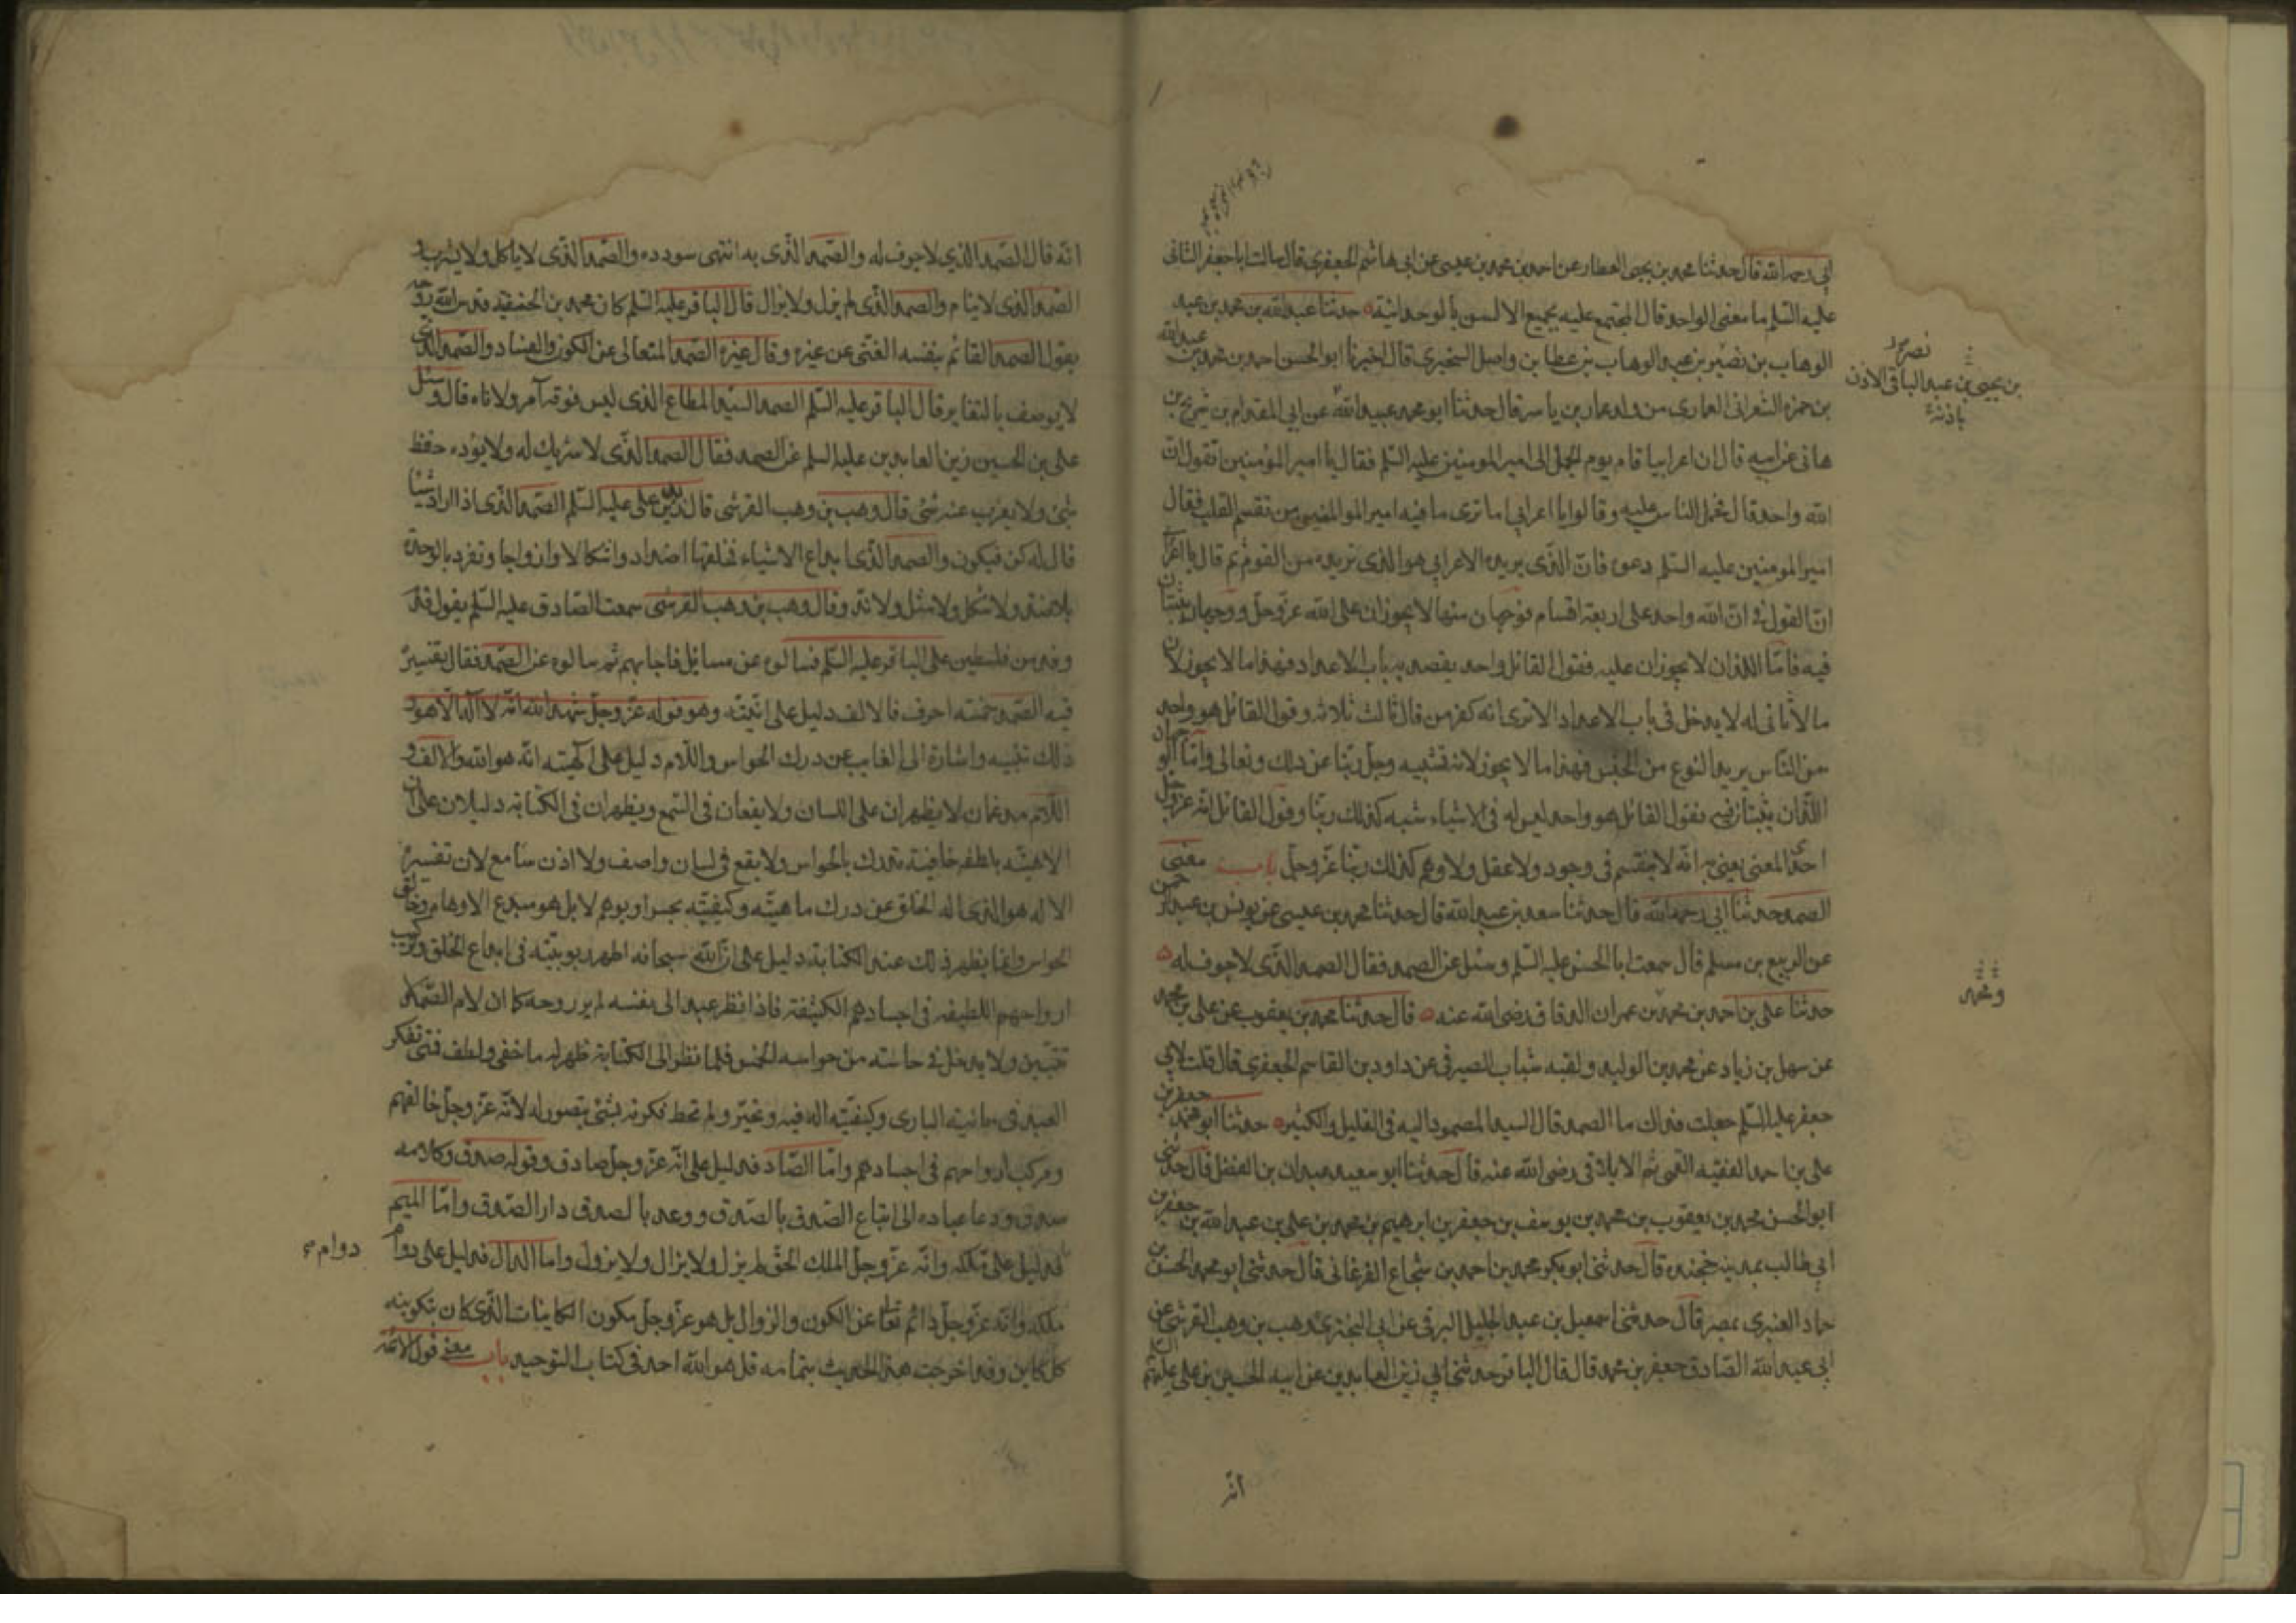 ابي رحمه الله قال حدثنا محمد بن يحيى العطار عن احمد بن محمد بن عيسى عن ابي هاشم الجعفرى قال سالت ابا جعفر الثانى
عليه السّلم ما معنى الواحد قال المجتمع عليه بجميع الالسن بالوحدانية حدثنا عبد الله بن محمد بن عبد
الوهاب بن نصير بن عبد الوهاب بن عطا بن واصل السنجرى قال اخبرنا ابو الحسن احمد بن محمد بن عبد الله
بن حمزه الشعرانى العمارى من ولد عمار بن ياسر قال حدثنا ابو محمد عبيد الله عن ابي المقدام بن شريح بن
هانى عن ابيه قال ان اعرابيا قام يوم الجمل الى امير المومنين عليه السّلم فقال يا امير المؤمنين تقول ان
الله واحد قال فحمل الناس عليه وقالوا يا اعرابي اما ترى ما فيه امير المومنين من تقسم القلب فقال
امير المومنين عليه السّلم دعوه فانّ الّذى يريده الاعرابي هو الذى نريده من القوم ثم قال يا اعرابي
انّ القول فى انّ الله واحد على اربعة اقسام فوجهان منها لا يجوزان على الله عزّ وجلّ ووجهان يثبتان
فيه فامّا اللذان لا يجوزان عليه فقول القائل واحد يقصد به باب الاعداد فهذا ما لا يجوز لان
ما لا ثانى له لا يدخل فى باب الاعداد الا ترى انه كفر من قال ثالث ثلاثه وقول القائل هو واحد
من النّاس يريد النوع من الجنس فهذا ما لا يجوز لانه تشبيه وجلّ ربّنا عن ذلك وتعالى وامّا الوجهان
اللّذان يثبتان فيه فقول القائل هو واحد ليس له فى الاشياء شبه كذلك ربّنا وقول القائل انّه عزّ وجل
احدىّ المعنى يعنى به انّه لا ينقسم فى وجود ولا عقل ولا وهم كذلك ربّنا عزّ وجلّ باب معنى
الصمد حدثنا ابي رحمه الله قال حدثنا سعد بن عبد الله قال حدثنا محمد بن عيسى عن يونس بن عبد الرحمن
عن الربيع بن مسلم قال سمعت ابا الحسن عليه السّلم وسئل عن الصمد فقال الصمد الّذى لا جوف له
حدثنا على بن احمد بن محمد بن عمران الدقاق رضى الله عنه قال حدثنا محمد بن يعقوب عن على بن محمد
عن سهل بن زياد عن محمد بن الوليد ولقبه شباب الصيرفى عن داود بن القاسم الجعفرى قال قلت لابي
جعفر عليه السّلم جعلت فداك ما الصمد قال السيد المصمود اليه فى القليل والكثير حدثنا ابو محمد جعفر بن
على بن احمد الفقيه القمى ثم الايلاقى رضى الله عنه قال حدثنا ابو سعيد عبدان بن الفضل قال حدثنى
ابو الحسن محمد بن يعقوب بن محمد بن يوسف بن جعفر بن ابرهيم بن محمد بن على بن عبد الله بن جعفر بن
ابي طالب بمدينه خجنده قال حدثنى ابو بكر محمد بن احمد بن شجاع الفرغانى قال حدثنى ابو محمد الحسن بن
حماد العنبرى بمصر قال حدثنى اسمعيل بن عبد الجليل البرقى عن ابي البخترى وهب بن وهب القرشى عن
ابي عبد الله الصّادق جعفر بن محمد قال قال الباقر حدثنى ابي زين العابدين عن ابيه الحسين بن على عليهم
نصر
بن يحيى بن عبد الباقى الاذن
باذنه
ومحمد
انّه
انّه قال الصّمد الذي لا جوف له والصّمد الّذى به انتهى سودده والصّمد الّذى لا ياكل ولا يشرب و
الصّمد الّذى لا ينام والصمد الّذى لم يزل ولا يزال قال الباقر عليه السّلم كان محمد بن الحنفيه قدس الله روحه
يقول الصمد القائم بنفسه الغنىّ عن غيره وقال غيره الصّمد المتعالى عن الكون والفساد والصّمد الّذى
لا يوصف بالتغاير قال الباقر عليه السّلم الصمد السيّد المطاع الذى ليس فوقه آمر ولا ناه قال وسئل
على بن الحسين زين العابدين عليه السلم عن الصمد فقال الصمد الّذى لا شريك له ولا يؤده حفظ
شئ ولا يعزب عنه شئ قال وهب بن وهب القرشى قال زيد بن على عليه السّلم الصّمد الّذى اذا اراد شيئا
قال له كن فيكون والصمد الّذى ابدع الاشياء فخلقها اضدادا واشكالا وازواجا وتفرد بالوحدة
بلا ضد ولا شكل ولا مثل ولا ندّ وقال وهب بن وهب القرشى سمعت الصّادق عليه السّلم يقول قدم
وفد من فلسطين على الباقر عليه السّلم فسالوه عن مسايل فاجابهم ثم سالوه عن الصّمد فقال تفسيره
فيه الصّمد خمسه احرف فالالف دليل على انّيّته وهو قوله عزّ وجلّ شهد الله انّه لا اله الا هو و
ذلك تنبيه واشارة الى الغايب عن درك الحواس واللّام دليل على الٰهيته انّه هو الله والالف و
اللّام مدغمان لا يظهران على اللسان ولا يقعان فى السّمع ويظهران فى الكتابة دليلان على ان
الاهيّته بلطفه خافية تدرك بالحواس ولا يقع فى لسان واصف ولا اذن سامع لان تفسير
الاله هو الذى اله الخلق عن درك ماهيّته وكيفيّته بحس او بوهم لا بل هو مبدع الاوهام وخالق
الحواس وانما يظهر ذلك عند الكتابة دليل على انّ الله سبحانه اظهر ربوبيّته فى ابداع الخلق وتركيب
ارواحهم اللطيفه فى اجسادهم الكثيفة فاذا نظر عبد الى نفسه لم ير روحه كما ان لام الصّمد لا
تتبيّن ولا يدخل فى حاسته من حواسه الخمس فلما نظر الى الكتابة ظهر له ما خفى ولطف فمتى تفكر
العبد فى مائيّة البارى وكيفيّته اله فيه وتحيّر ولم تحط فكرته بشئ يتصور له لانّه عزّ وجلّ خالقهم
ومركب ارواحهم فى اجسادهم وامّا الصّاد فدليل على انّه عزّ وجلّ صادق وقوله صدق وكلامه
صدق ودعا عباده الى اتباع الصّدق بالصّدق ووعد بالصدق دار الصّدق وامّا الميم
فدليل على ملكه وانّه عزّ وجلّ الملك الحقّ لم يزل ولا يزال ولا يزول واما الدال فدليل على دوام
ملكه وانّه عزّ وجلّ دائم تعالى عن الكون والزوال بل هو عزّ وجلّ مكون الكاينات الّذى كان بتكوينه
كل كاين وقد اخرجت هذا الحديث بتمامه قل هو الله احد فى كتاب التوحيد باب معنى قول الائمّه
دوام